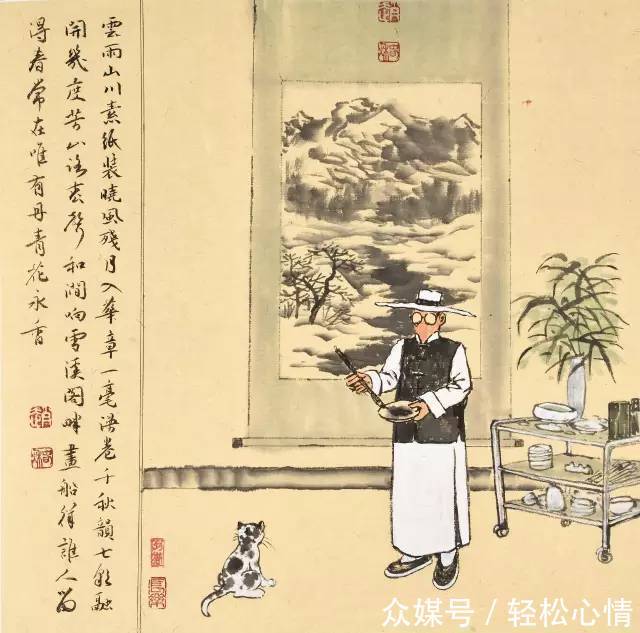 雲雨山川素紙裝曉風殘月入華章一毫漫卷千秋韻七彩融
開幾度芳山春聲和澗响雪溪閣畔畫船徉誰人留
得春常在唯有丹青花永香
众媒号 / 轻松心情